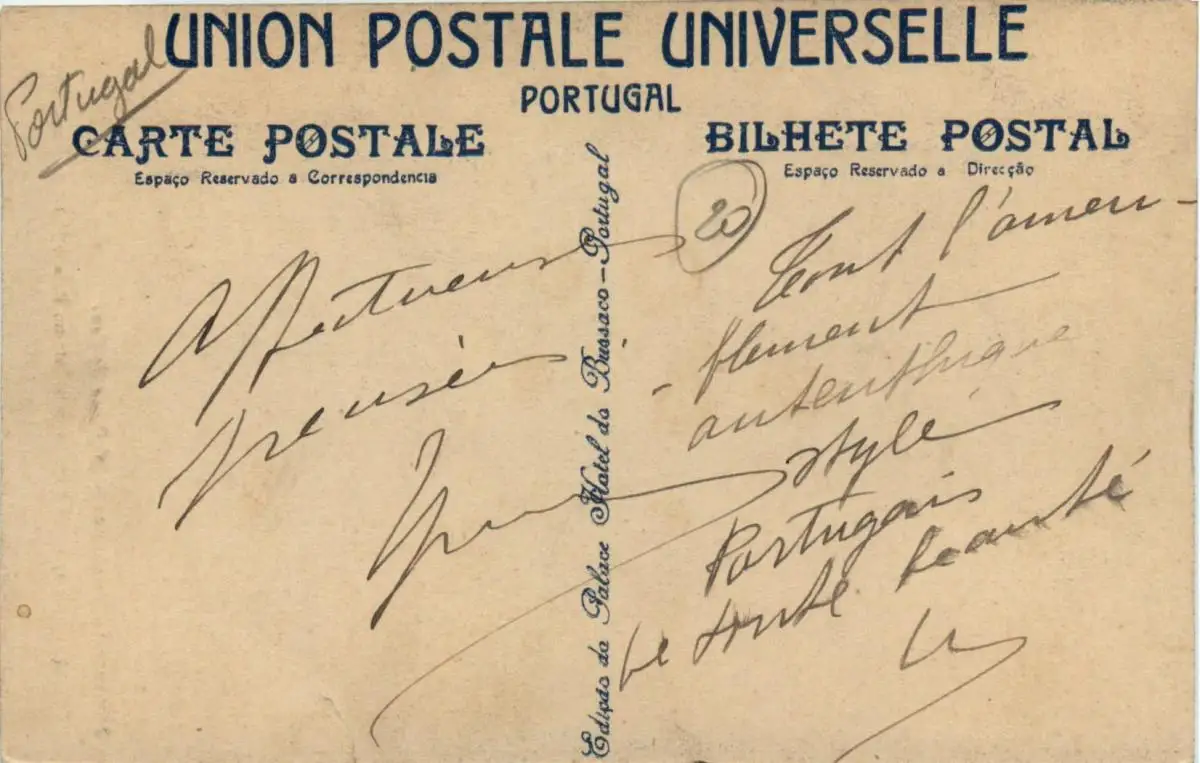 UNION POSTALE UNIVERSELLE
PORTUGAL
Portugal
CARTE POSTALE
Espaço Reservado a Correspondencia
BILHETE POSTAL
Espaço Reservado a Direcção
20
Affectueuse
pensée
Edição do Palace Hotel do Bussaco-Portugal
Tout l'ameu-
-blement
autenthique
style
Portugais
de toute beauté